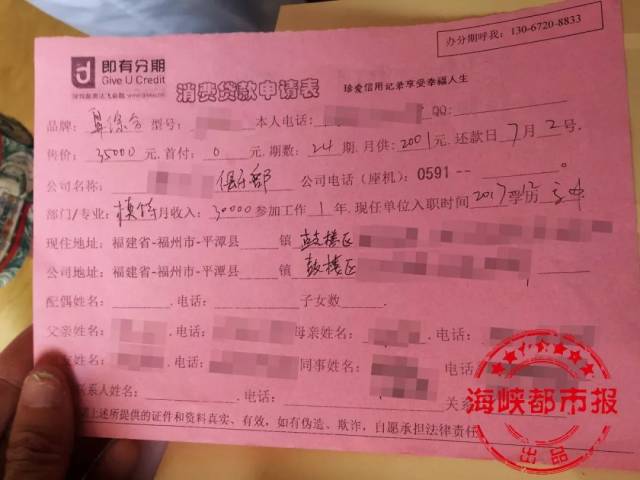 办分期呼我：130-6720-8833
即有分期
Give U Credit
消费贷款申请表
珍爱信用记录享受幸福人生
品牌：鼻综合 型号： 本人电话： QQ：
售价：35000元.首付：0元.期数：24期.月供：2001元.还款日7月2号.
公司名称： 俱乐部 公司电话（座机）：0591--
部门/专业：模特 月收入：30000 参加工作1年.现任单位入职时间2017 学历
现住地址：福建省-福州市-平潭县 镇 鼓楼区
公司地址：福建省-福州市-平潭县 镇 鼓楼区
配偶姓名： .电话： 子女数 .
父亲姓名： .电话： 母亲姓名： .电话：
姓名： .电话： 同事姓名： .电话：
系人姓名： .电话： 关系
上述所提供的证件和资料真实、有效，如有伪造、欺诈，自愿承担法律责任
海峡都市报
出品